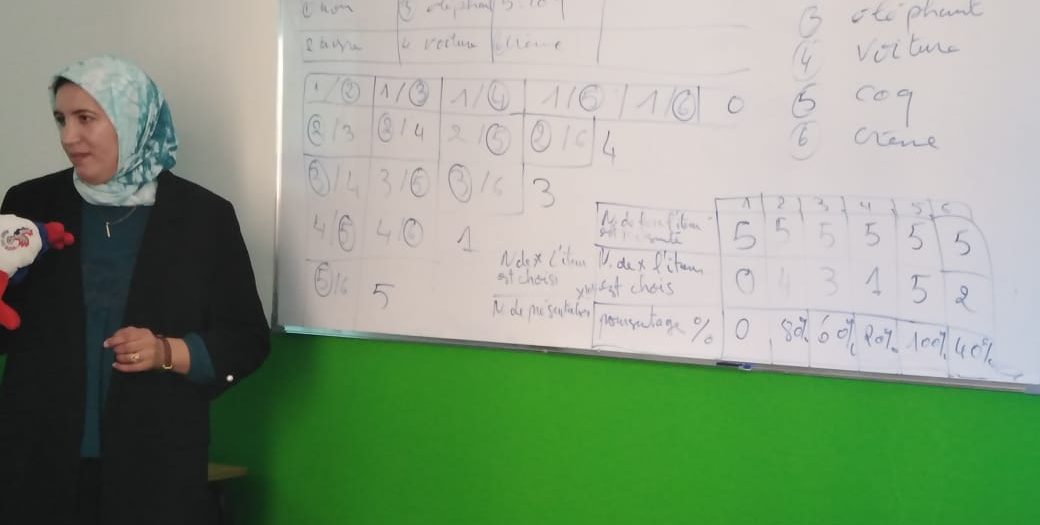 ① ③
4 voiture crème
1/② 1/③ 1/④ 1/⑤ 1/⑥ 0
②/3 ②/4 2/⑤ ②/6 4
③/4 3/⑤ ③/6 3
4/⑤ 4/⑥ 1
⑤/6 5
③ éléphant
④ voiture
⑤ coq
⑥ crème
1 2 3 4 5 6
N. de fois l'item est 5 5 5 5 5 5
N. de x l'item est chois 0 4 3 1 5 2
pourcentage % 0 80% 60% 20% 100% 40%
N de x l'item
est choisi
N. de présentation